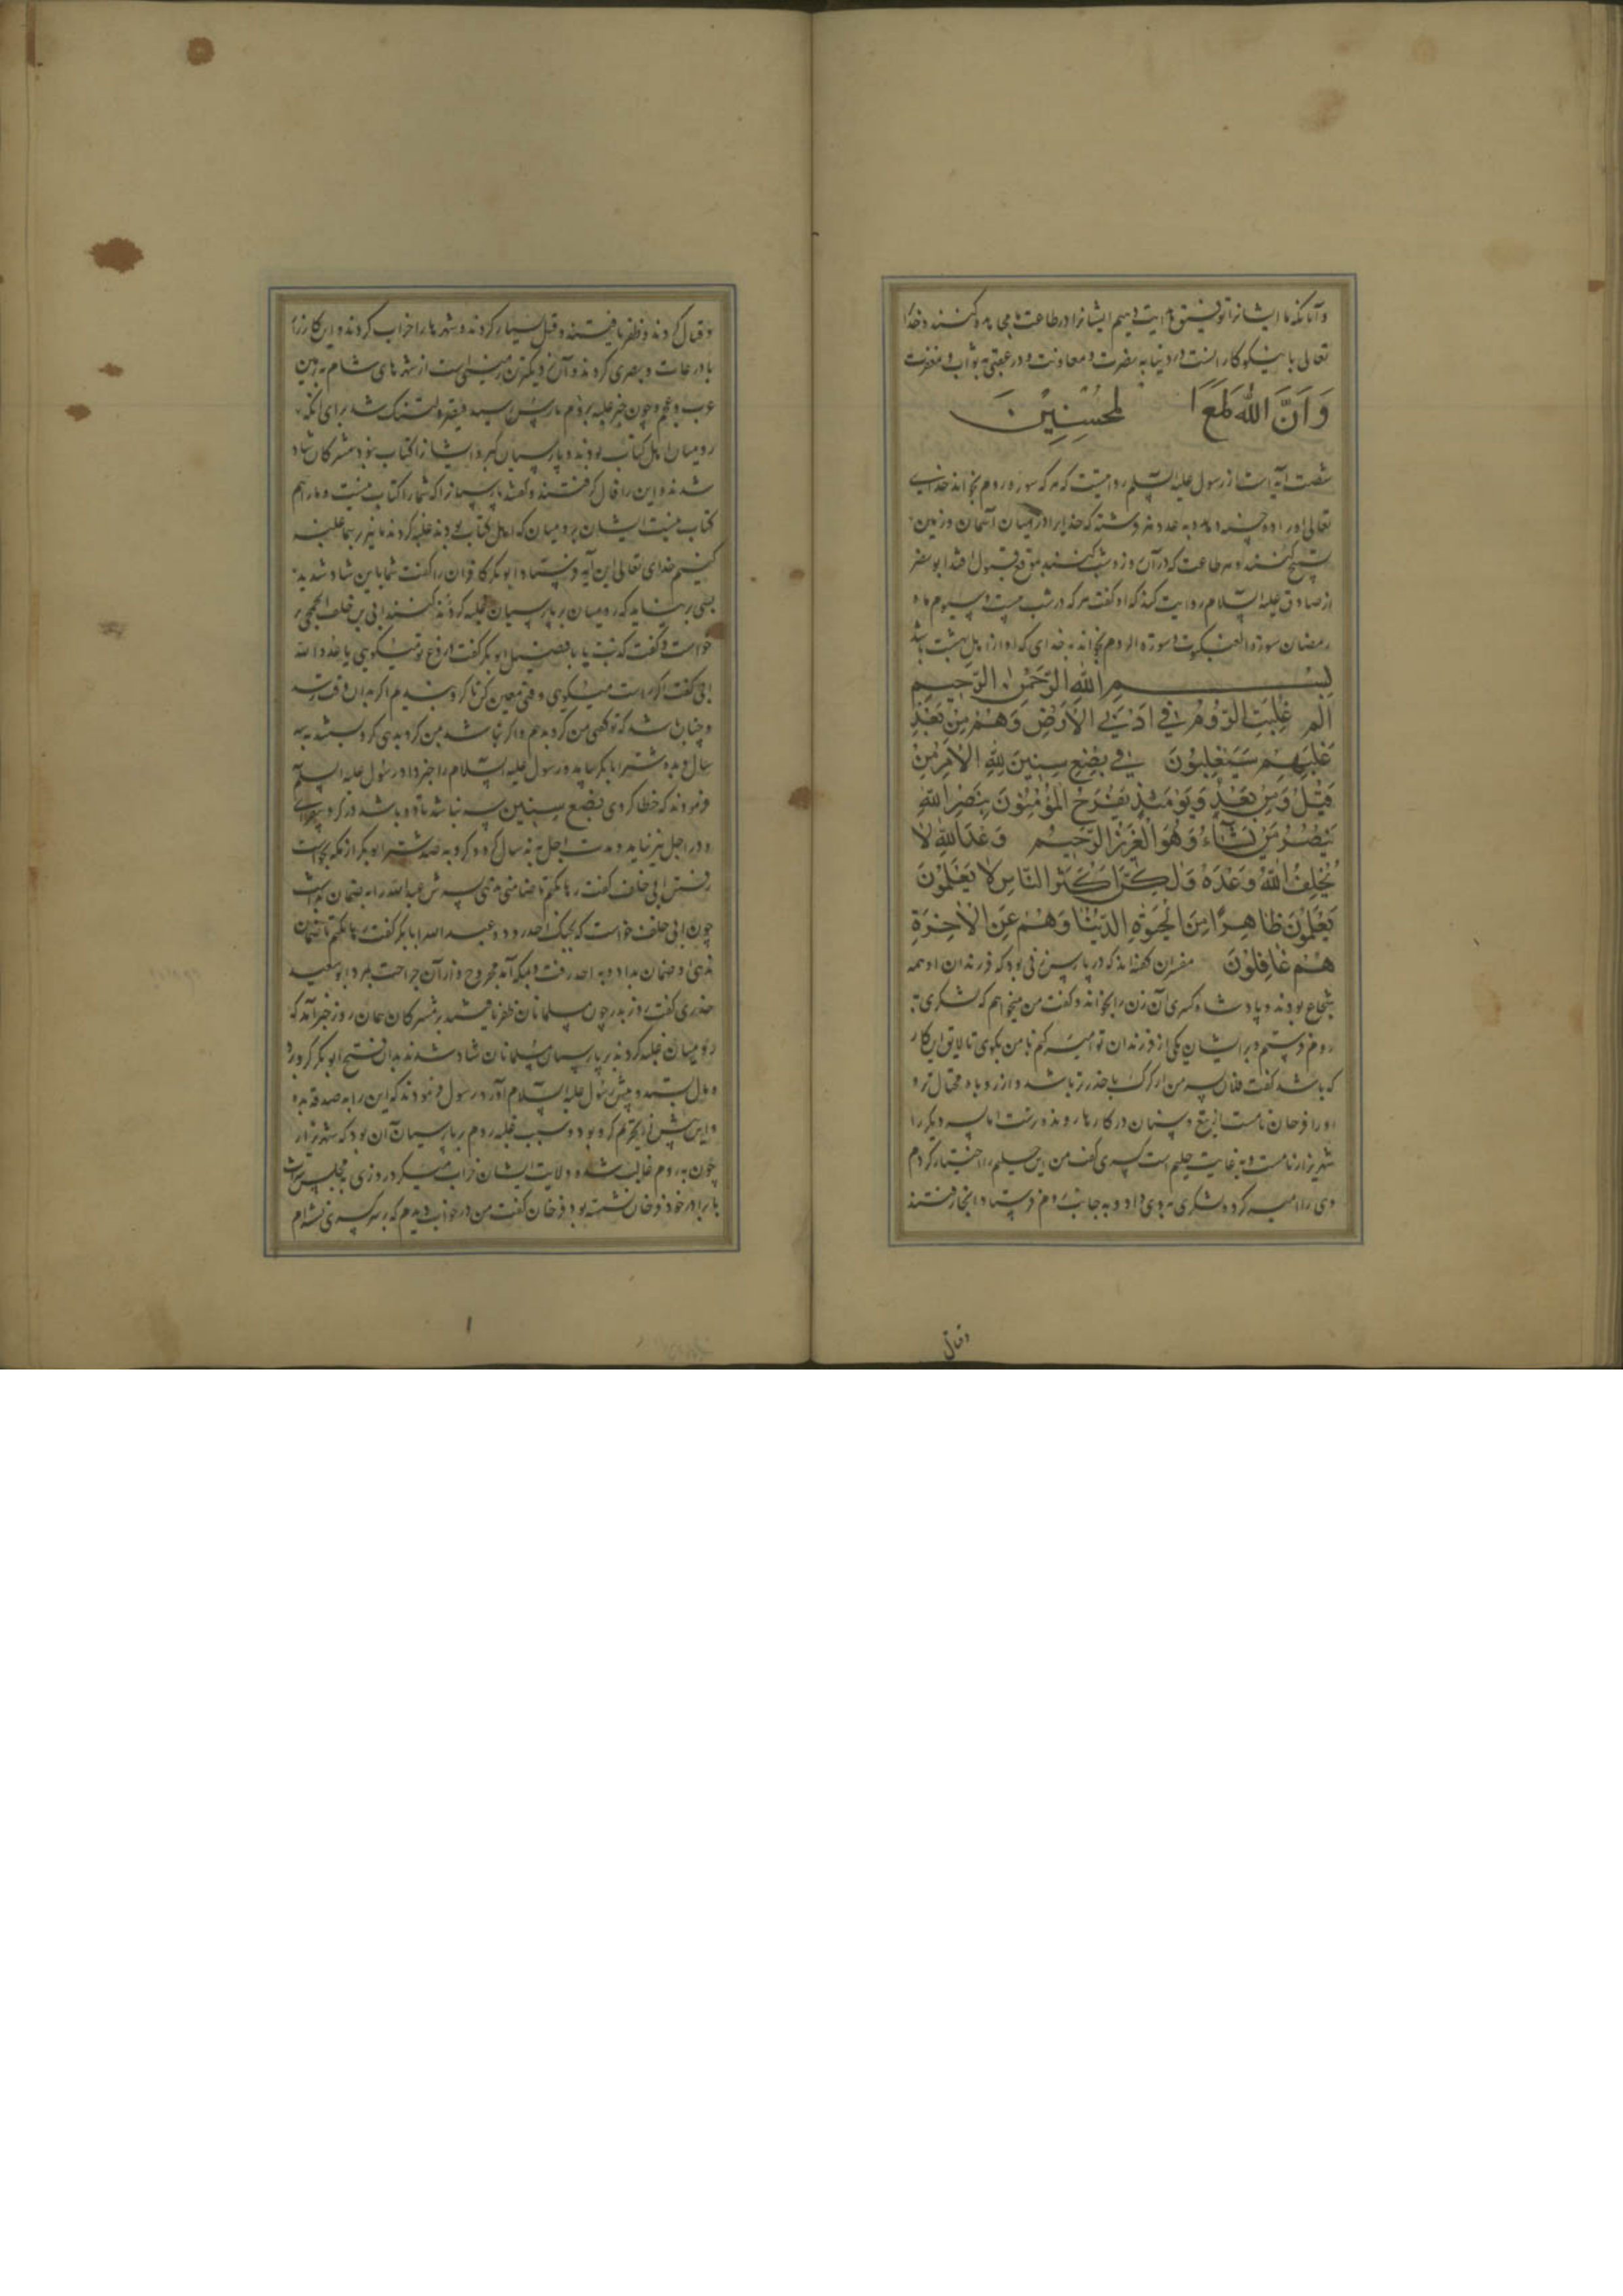 و آنانکه ما ایشانرا توفیق هدایت دهیم ایشانرا در طاعت ما مجاهده کنند و خدا
تعالی با نیکوکارانست در دنیا به نصرت و معاونت و در عقبی به ثواب و مغفرت
وَاَنَّ اللّٰهَ لَمَعَ ا لمُحْسِنِیْنَ
شصت آیه است از رسول علیه السّلم روایتست که هر که سوره روم بخواند خدای
تعالی او را ده حسنه دهد به عدد هر فرشته که خدایرا در میان آسمان و زمین
تسبیح کنند و هر طاعت که در آن روز و شب کند بموقع قبول افتد ابو بصیر
از صادق علیه السّلام روایت کند که او گفت هر که در شب بیست و سیوم ماه
رمضان سورة العنکبوت و سوره الروم بخواند به خدای که او از اهل بهشت باشد
بِسْمِ اللّٰهِ الرَّحْمٰنِ الرَّحِیْمِ
الٓم غُلِبَتِ الرُّوْمُ فِیْ اَدْنَی الْاَرْضِ وَهُمْ مِنْ بَعْدِ
غَلَبِهِمْ سَیَغْلِبُوْنَ فِیْ بِضْعِ سِنِیْنَ لِلّٰهِ الْاَمْرُ مِنْ
قَبْلُ وَمِنْ بَعْدُ وَیَوْمَئِذٍ یَفْرَحُ الْمُؤْمِنُوْنَ بِنَصْرِ اللّٰهِ
یَنْصُرُ مَنْ یَشَآءُ وَهُوَ الْعَزِیْزُ الرَّحِیْمُ وَعْدَ اللّٰهِ لَا
یُخْلِفُ اللّٰهُ وَعْدَهُ وَلٰکِنَّ اَکْثَرَ النَّاسِ لَا یَعْلَمُوْنَ
یَعْلَمُوْنَ ظَاهِرًا مِنَ الْحَیٰوةِ الدُّنْیَا وَهُمْ عَنِ الْاٰخِرَةِ
هُمْ غَافِلُوْنَ مفسران گفته‌اند که در پارس زنی بود که فرزندان او همه
شجاع بودند و پادشاه کسری آن زن را بخواند و گفت من میخواهم که لشکری به
روم فرستم و بر ایشان یکی از فرزندان تو امیر کنم با من بگوی تا لایق این کار
که باشد گفت فلان پسر من از گرگ با حذرتر باشد و از روباه محتال‌تر و
او را فرخان نامست از تیغ و سنان در کارها رونده‌ترست اما پسر دیگر را
شهریزار نامست و به غایت حلیم است کسری گفت من این حلیم را اختیار کردم
وی را امیر کرد و لشکری به وی داد و به جانب روم فرستاد آنجا رفتند
وقتال
وقتال کردند و ظفر یافتند و قتل بسیار کردند و شهرها را خراب کردند و این کارزار
با درعات و بصری کردند و آن نزدیکترین زمینی است از شهرهای شام به زمین
عرب و عجم و چون خبر غلبه بر روم پارس رسید دلتنگ شد برای آنکه
رومیان اهل کتاب بودند و پارسیان گبر و ایشانرا کتاب نبود مشرکان شاد
شدند و این را فال گرفتند و گفتند پارسیانرا که شما را کتاب نیست و ما را هم
کتاب نیست ایشان بر رومیان که اهل کتاب بودند غلبه کردند ما نیز بر شما غلبه
کنیم خدای تعالی این آیه فرستاد ابو بکر کافران را گفت شما باین شاد شدید
بسی بر نیاید که رومیان بر پارسیان غلبه کردند کنند ابی بن خلف الجمحی بر
خواست و گفت کذبت یا با فضیل ابو بکر گفت دروغ تو میگویی یا عدو الله
ابی گفت اگر راست میگوی وقتی معین کن تا گرو بندیم اگر به آن وقت
و چنان شد که تو گفتی من گرو بدهم و اگر نباشد من گرو بدهی گرو بستند به سه
سال و به ده شتر ابا بکر بیامد و رسول علیه السّلام را خبر داد رسول علیه السلم
فرمودند که خطا کردی بضع سنین سه نباشد تا نه باشد در گرو بیفزای
و در اجل نیز بیامد و مدت اجل به نه سال کرد و گرو به صد شتر ابو بکر از مکه بخواست
رفتن ابی خلف گفت رها نکنم تا ضامنی بدهی پسرش عبدالله را به ضمان بداشت
چون ابی خلف خواست که بجنک احد رود عبد الله ابا بکر گفت رها نکنم تا ضمان
بدهی او ضمان بداد و به احد رفت و بمکه آمد مجروح و از آن جراحت بمرد ابو سعید
خدری گفت روز بدر چون مسلمانان ظفر یافتند بر مشرکان همان روز خبر آمد که
رومیان غلبه کردند بر پارسیان مسلمانان شاد شدند بدان فتح ابو بکر گرو برد
و مال بستد و پیش رسول علیه السّلام آورد رسول فرمودند که این را به صدقه بده
و این پیش از تحریم گرو بود و سبب غلبه روم بر پارسیان آن بود که شهریزار
چون به روم غالب شد و ولایت ایشان خراب میکرد روزی به مجلس شراب
با برادر خود فرخان نشسته بود فرخان گفت من در خواب دیدم که بر سریر کسری نشسته‌ام